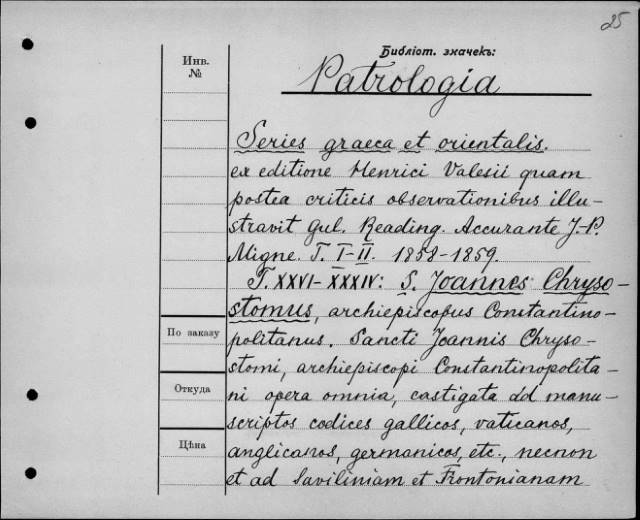 25
Библіот. значекъ:
Инв.
№
Patrologia
Series graeca et orientalis.
ex editione Henrici Valesii quam
postea criticis observationibus illu-
stravit Gul. Reading. Accurante J.-P.
Migne. T. I-II. 1858-1859.
T. XXVI-XXXIV: S. Joannes Chryso-
stomus, archiepiscopus Constantino-
politanus. Sancti Joannis Chryso-
stomi, archiepiscopi Constantinopolita-
ni opera omnia, castigata ad manu-
scriptos codices gallicos, vaticanos,
anglicanos, germanicos, etc., necnon
et ad Saviliniam et Frontonianam
По заказу
Откуда
Цѣна